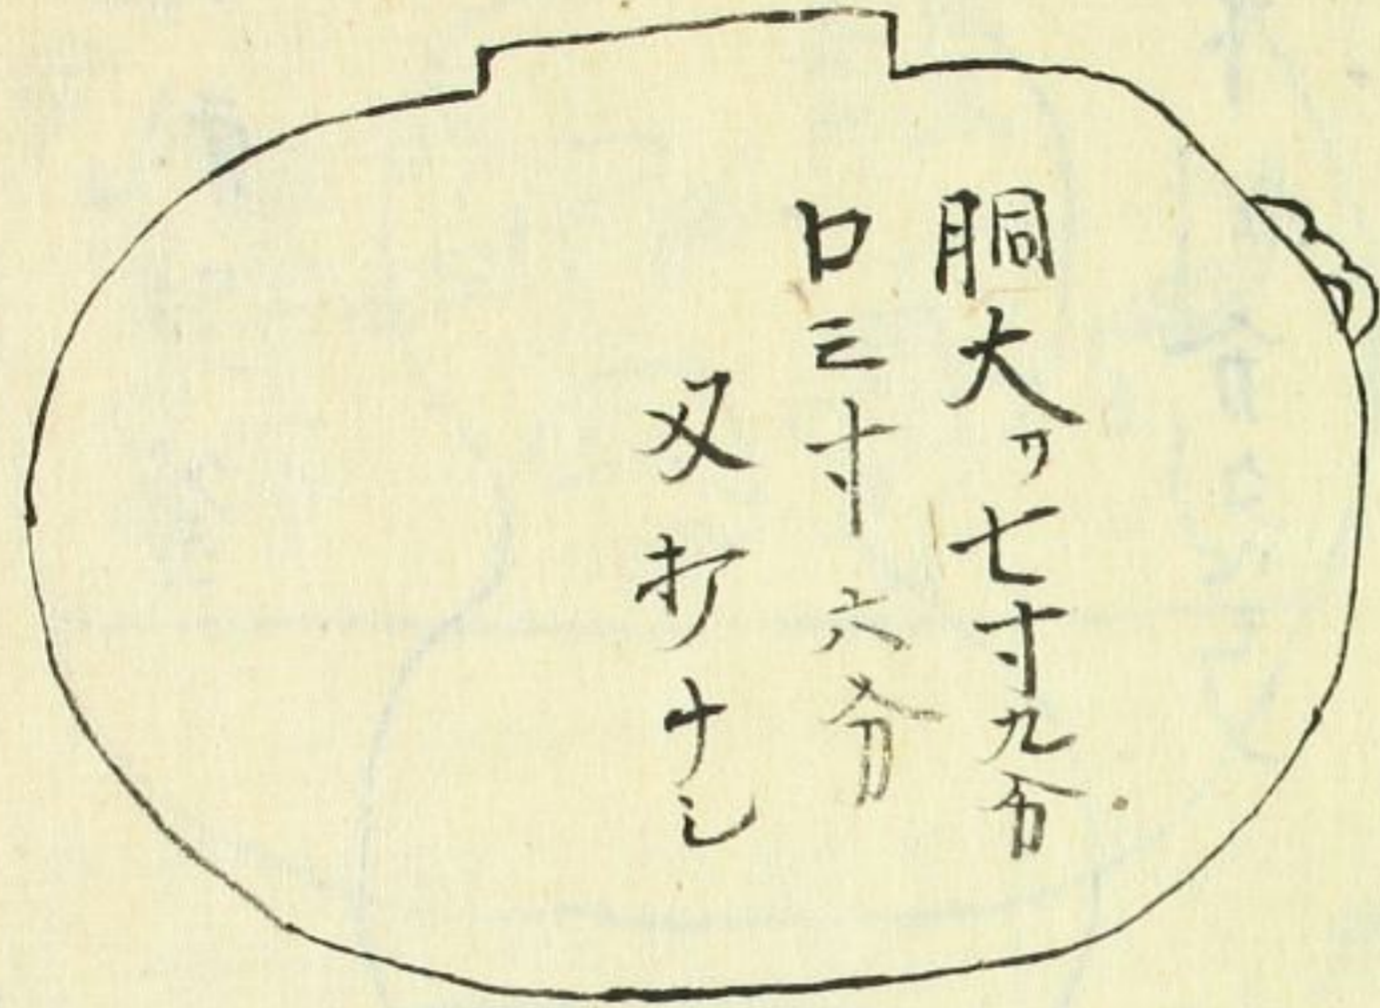 胴大サ七寸九分
口三寸六分
又打ナシ